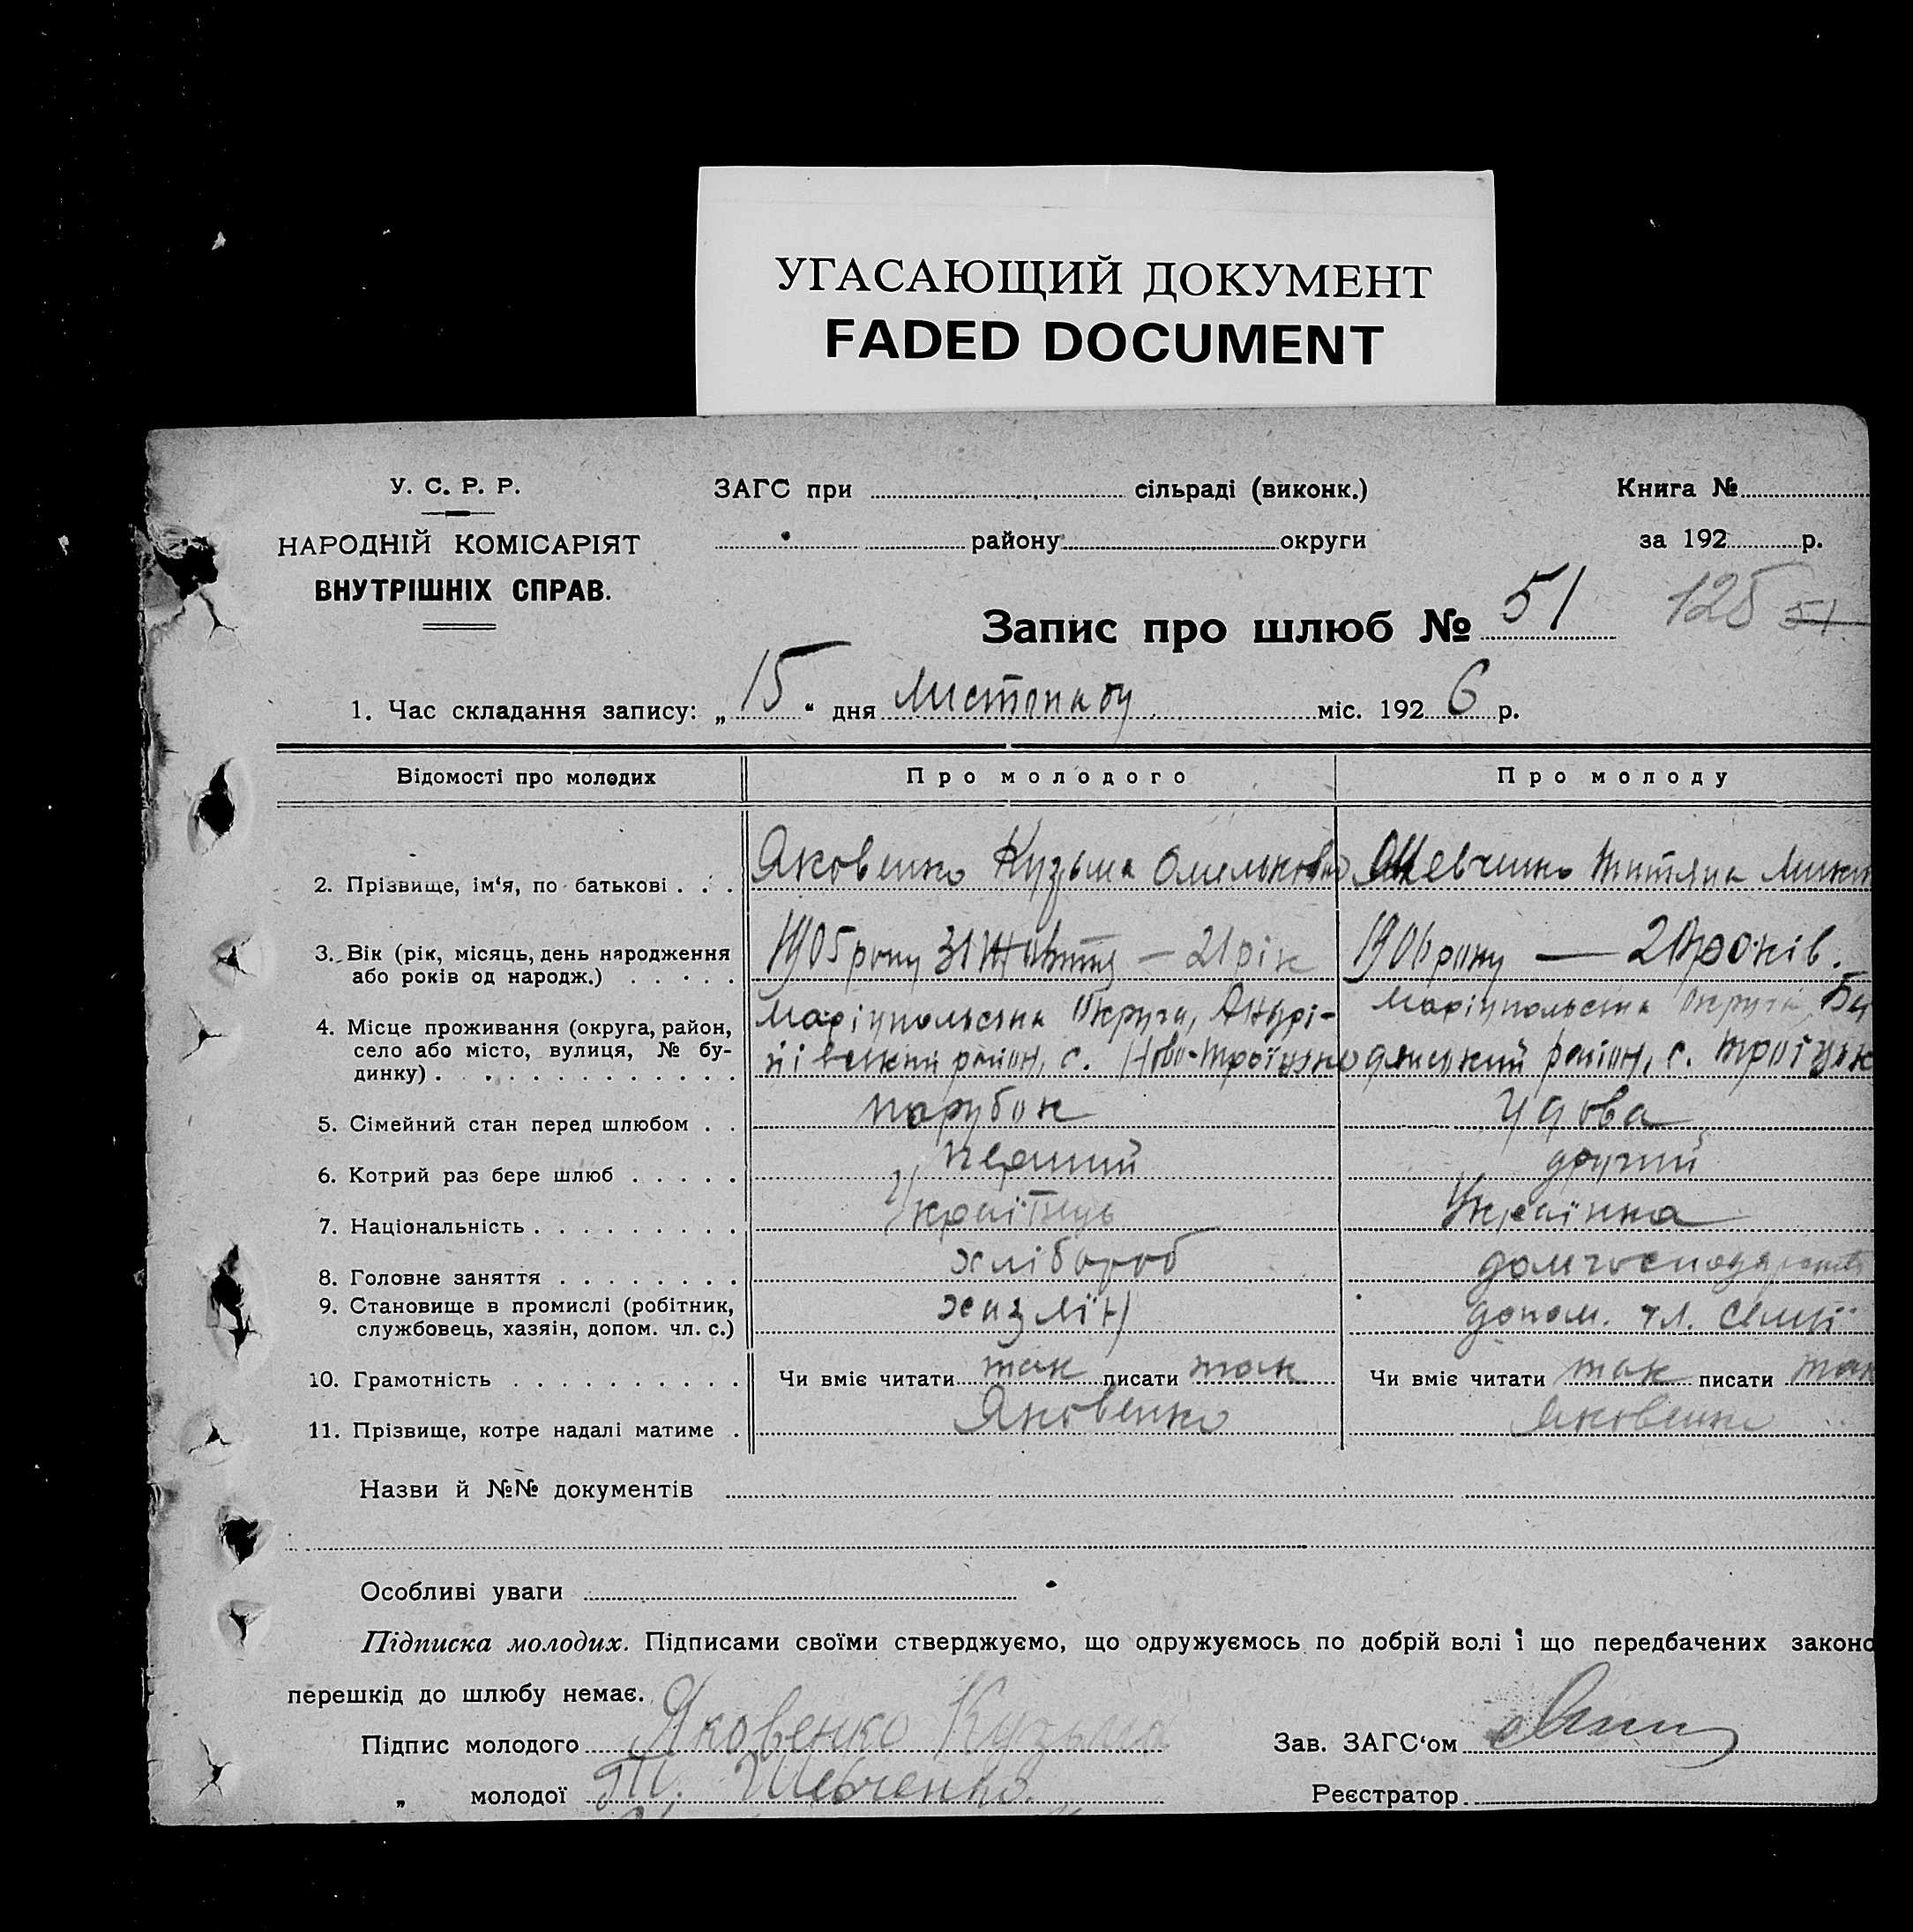 УГАСАЮЩИЙ ДОКУМЕНТ
FADED DOCUMENT
У. С. Р. Р.
НАРОДНІЙ КОМІСАРІЯТ
ВНУТРІШНІХ СПРАВ.
ЗАГС при сільраді (виконк.)
району округи
Книга №
за 192 р.
Запис про шлюб № 51 125 51
1. Час складання запису: „15“ дня Листопаду міс. 1926 р.
Відомості про молодих Про молодого Про молоду
2. Прізвище, ім‘я, по батькові . . . Яковенко Кузьма Омелькович Шевченко Титяна Мики
3. Вік (рік, місяць, день народження 1905 року 31 Жовтня — 21 рік 1906 року — 20 років.
або років од народж.) . . . . .
4. Місце проживання (округа, район, Маріупольська Округа, Андрі- Маріупольська округа, Бу
село або місто, вулиця, № бу- ївський район, с. Ново-Троїцьке район, с. Троїцьк
динку) . . . . . . . . . . . .
5. Сімейний стан перед шлюбом . . парубок Удова
6. Котрий раз бере шлюб . . . . . перший другий
7. Національність . . . . . . . . . Українець Українка
8. Головне заняття . . . . . . . . хлібороб
9. Становище в промислі (робітник, хазяїн допом. чл. семії
службовець, хазяін, допом. чл. с.)
10. Грамотність . . . . . . . . . . Чи вміє читати так писати так Чи вміє читати так писати так
11. Прізвище, котре надалі матиме . Яковенко Яковенко
Назви й №№ документів
Особливі уваги
Підписка молодих. Підписами своїми стверджуємо, що одружуємось по добрій волі і що передбачених законо
перешкід до шлюбу немає.
Підпис молодого Яковенко Кузьма Зав. ЗАГС‘ом
„ молодої Т. Шевченко. Реєстратор